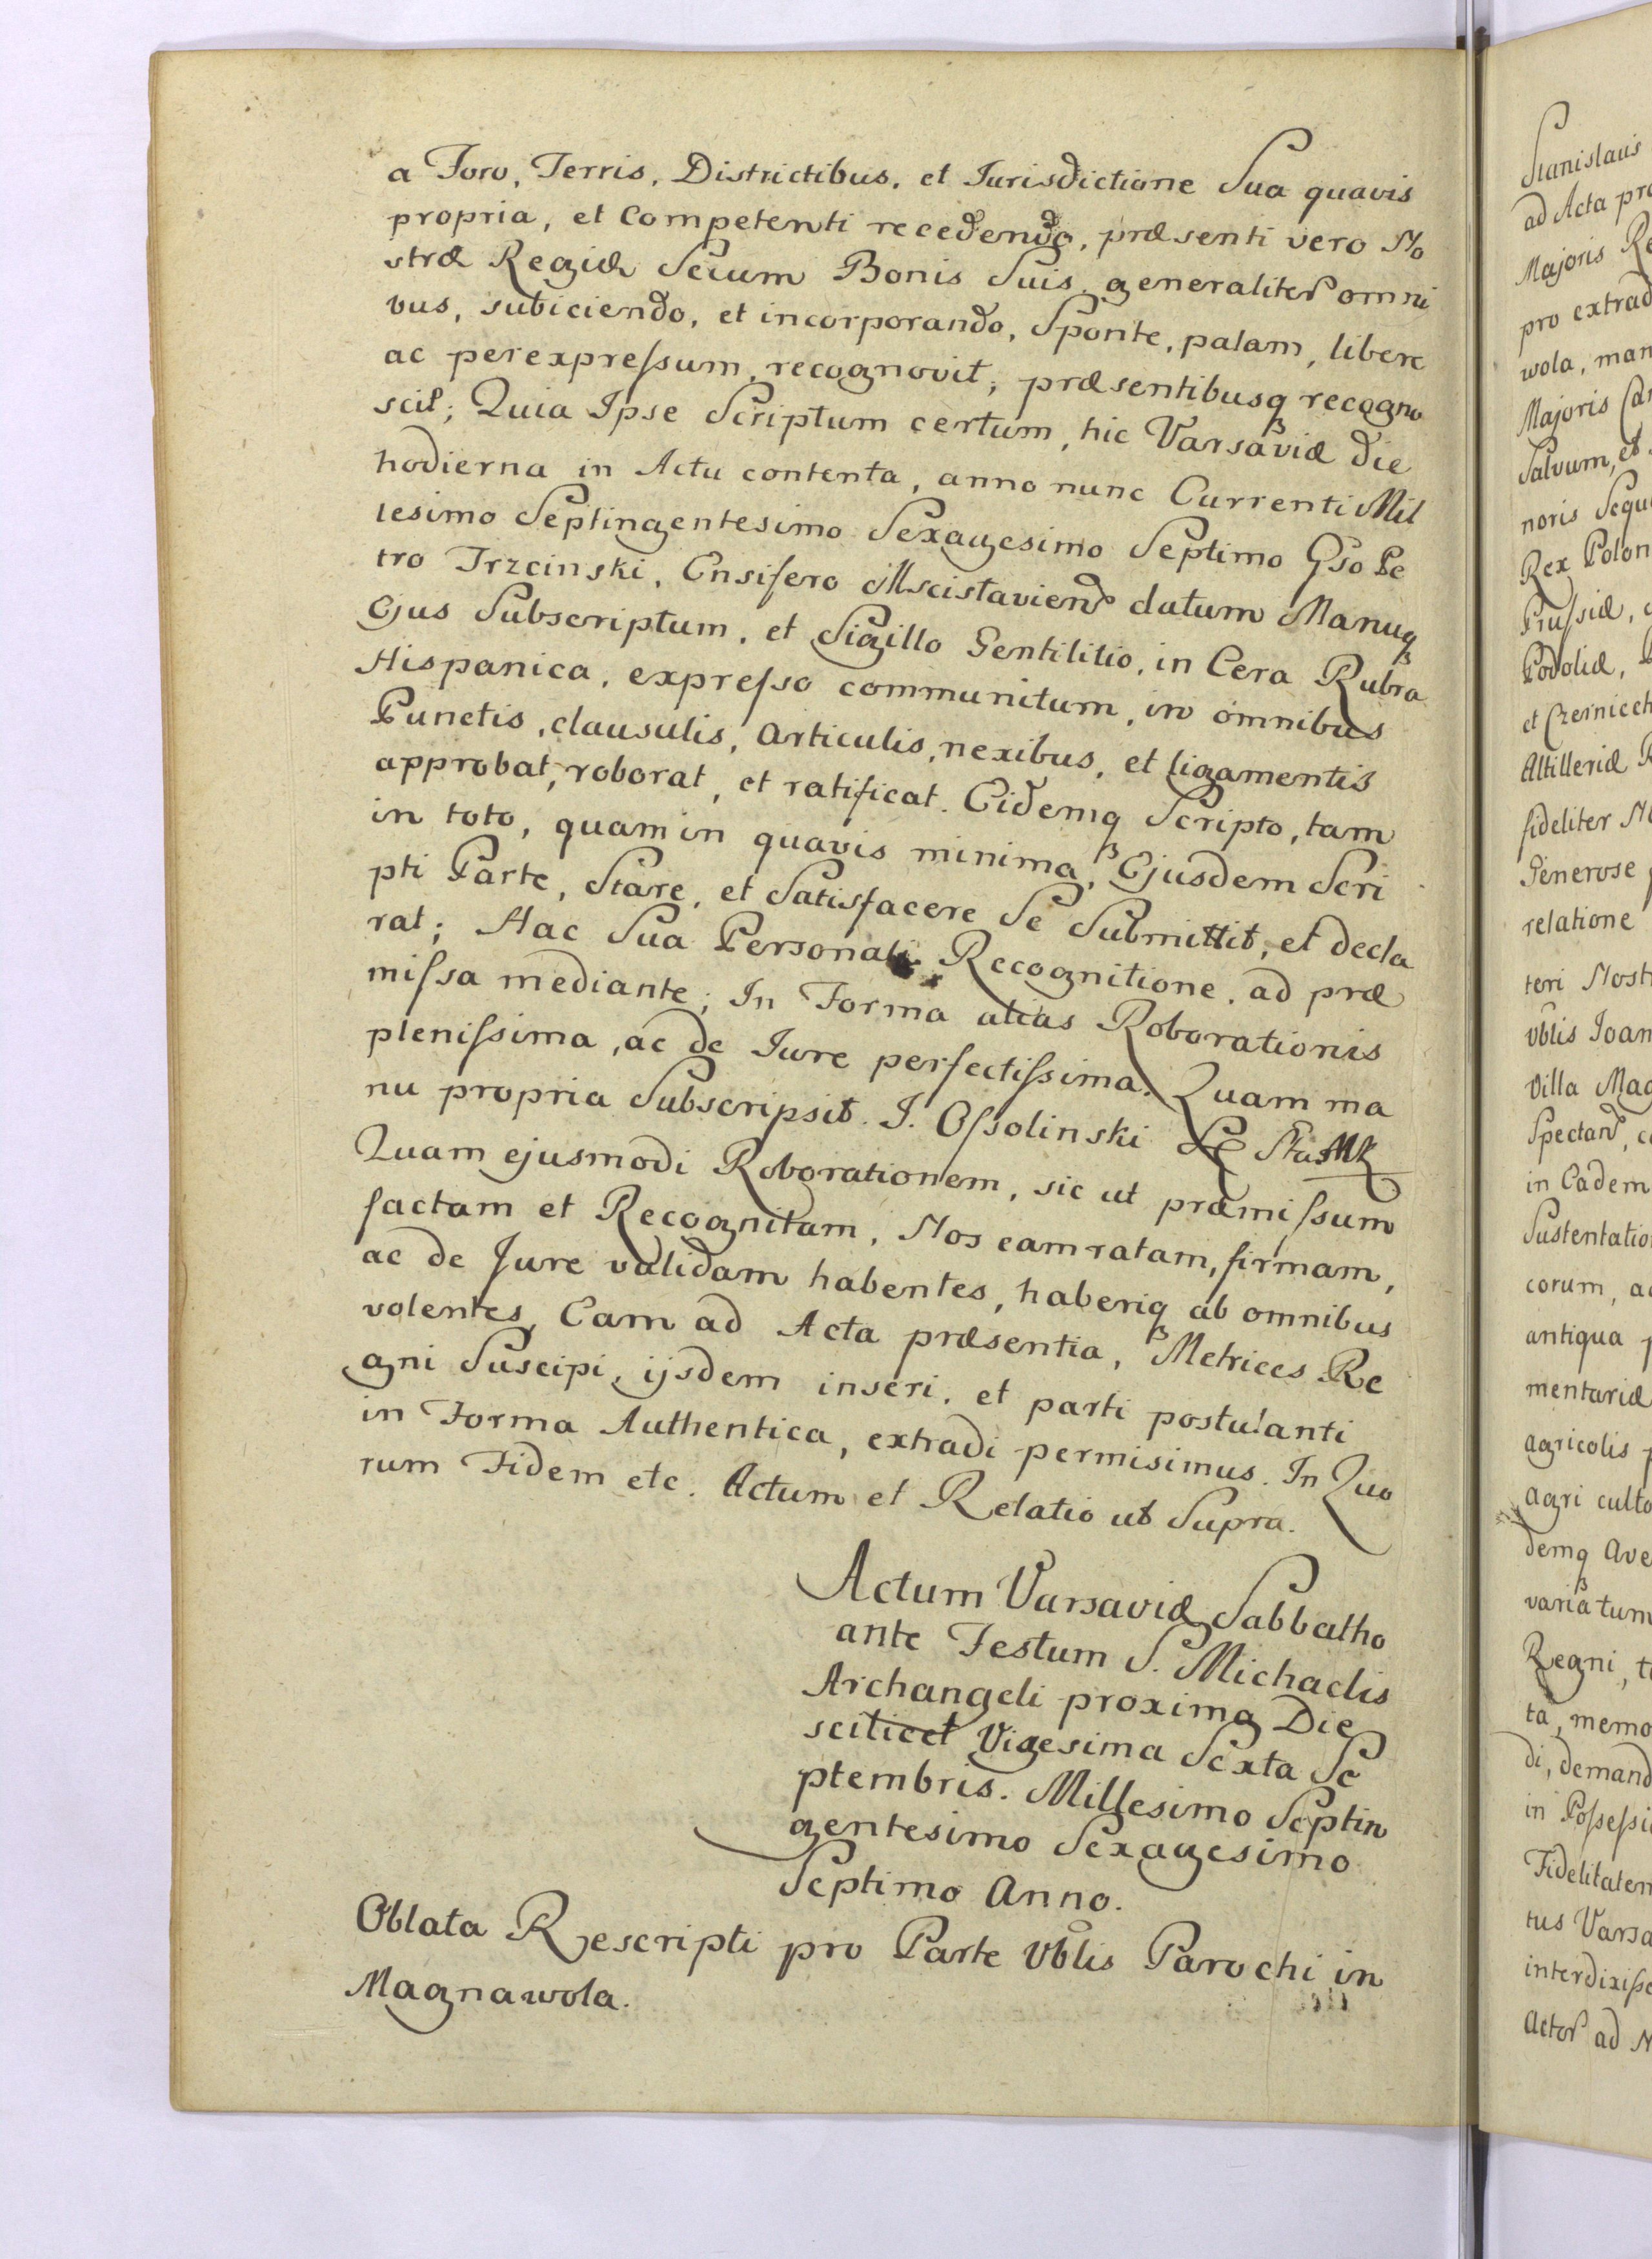 a Foro, Terris, Districtibus, et Iurisdictione Sua quavis
propria, et Competenti recedendo, præsenti vero No
stræ Regiæ Secum Bonis Suis generaliter omni
bus, subiciendo, et incorporando, Sponte, palam, libere
ac per expreſsum, recognovit, præsentibusq recogno
scit; Quia Ipse Scriptum certum, hic Varsaviæ die
hodierna in Actu contenta, anno nunc Currenti Mil
lesimo Septingentesimo Sexagesimo Septimo Gso Pe
tro Trzcinski, Ensifero Mscislavien datum Manuq
Ejus Subscriptum, et Sigillo Gentilitio, in Cera Rubra
Hispanica, expreſso communitum, in omnibus
Punctis, clausulis, Articulis, nexibus, et ligamentis
approbat, roborat, et ratificat. Eidemq Scripto, tam
in toto, quam in quavis minima, Ejusdem Scri
pti Parte, Stare, et Satisfacere Se Submittit, et decla
rat; Hac Sua Personali Recognitione, ad præ
miſsa mediante; In Forma alias Roborationis
pleniſsima, ac de Iure perfectiſsima. Quam ma
nu propria Subscripsit. J. Oſsolinski
Quam ejusmodi Roborationem, sic ut præmiſsum
factam et Recognitam, Nos eam ratam, firmam,
ac de Jure validam habentes, haberiq ab omnibus
volentes, Eam ad Acta præsentia, Metrices Re
gni Suscipi, ijsdem inseri, et parti postulanti
in Forma Authentica, extradi permisimus. In Quo
rum Fidem etc. Actum et Relatio ut Supra.
Actum Varsaviæ Sabbatho
ante Festum S. Michaelis
Archangeli proximo Die
scilicet Vigesima Sexta Se
ptembris. Millesimo Septin
gentesimo Sexagesimo
Septimo Anno.
Oblata Rescripti pro Parte Vblis Parochi in
Magnawola.
Stanislaus
ad Acta
Majoris
pro
wola,
Majoris
Salvum, et
noris
Rex Polon
Pruſsiæ,
Podoliæ,
et
Altilleriæ
fideliter
Generose
relatione
teri
Vblis Ioan
Villa
in Eadem
corum,
antiqua
mentariæ
agricolis
agri
demq
variatum
Regni,
ta, memo
di,
in
Fidelitatem
tus
ad